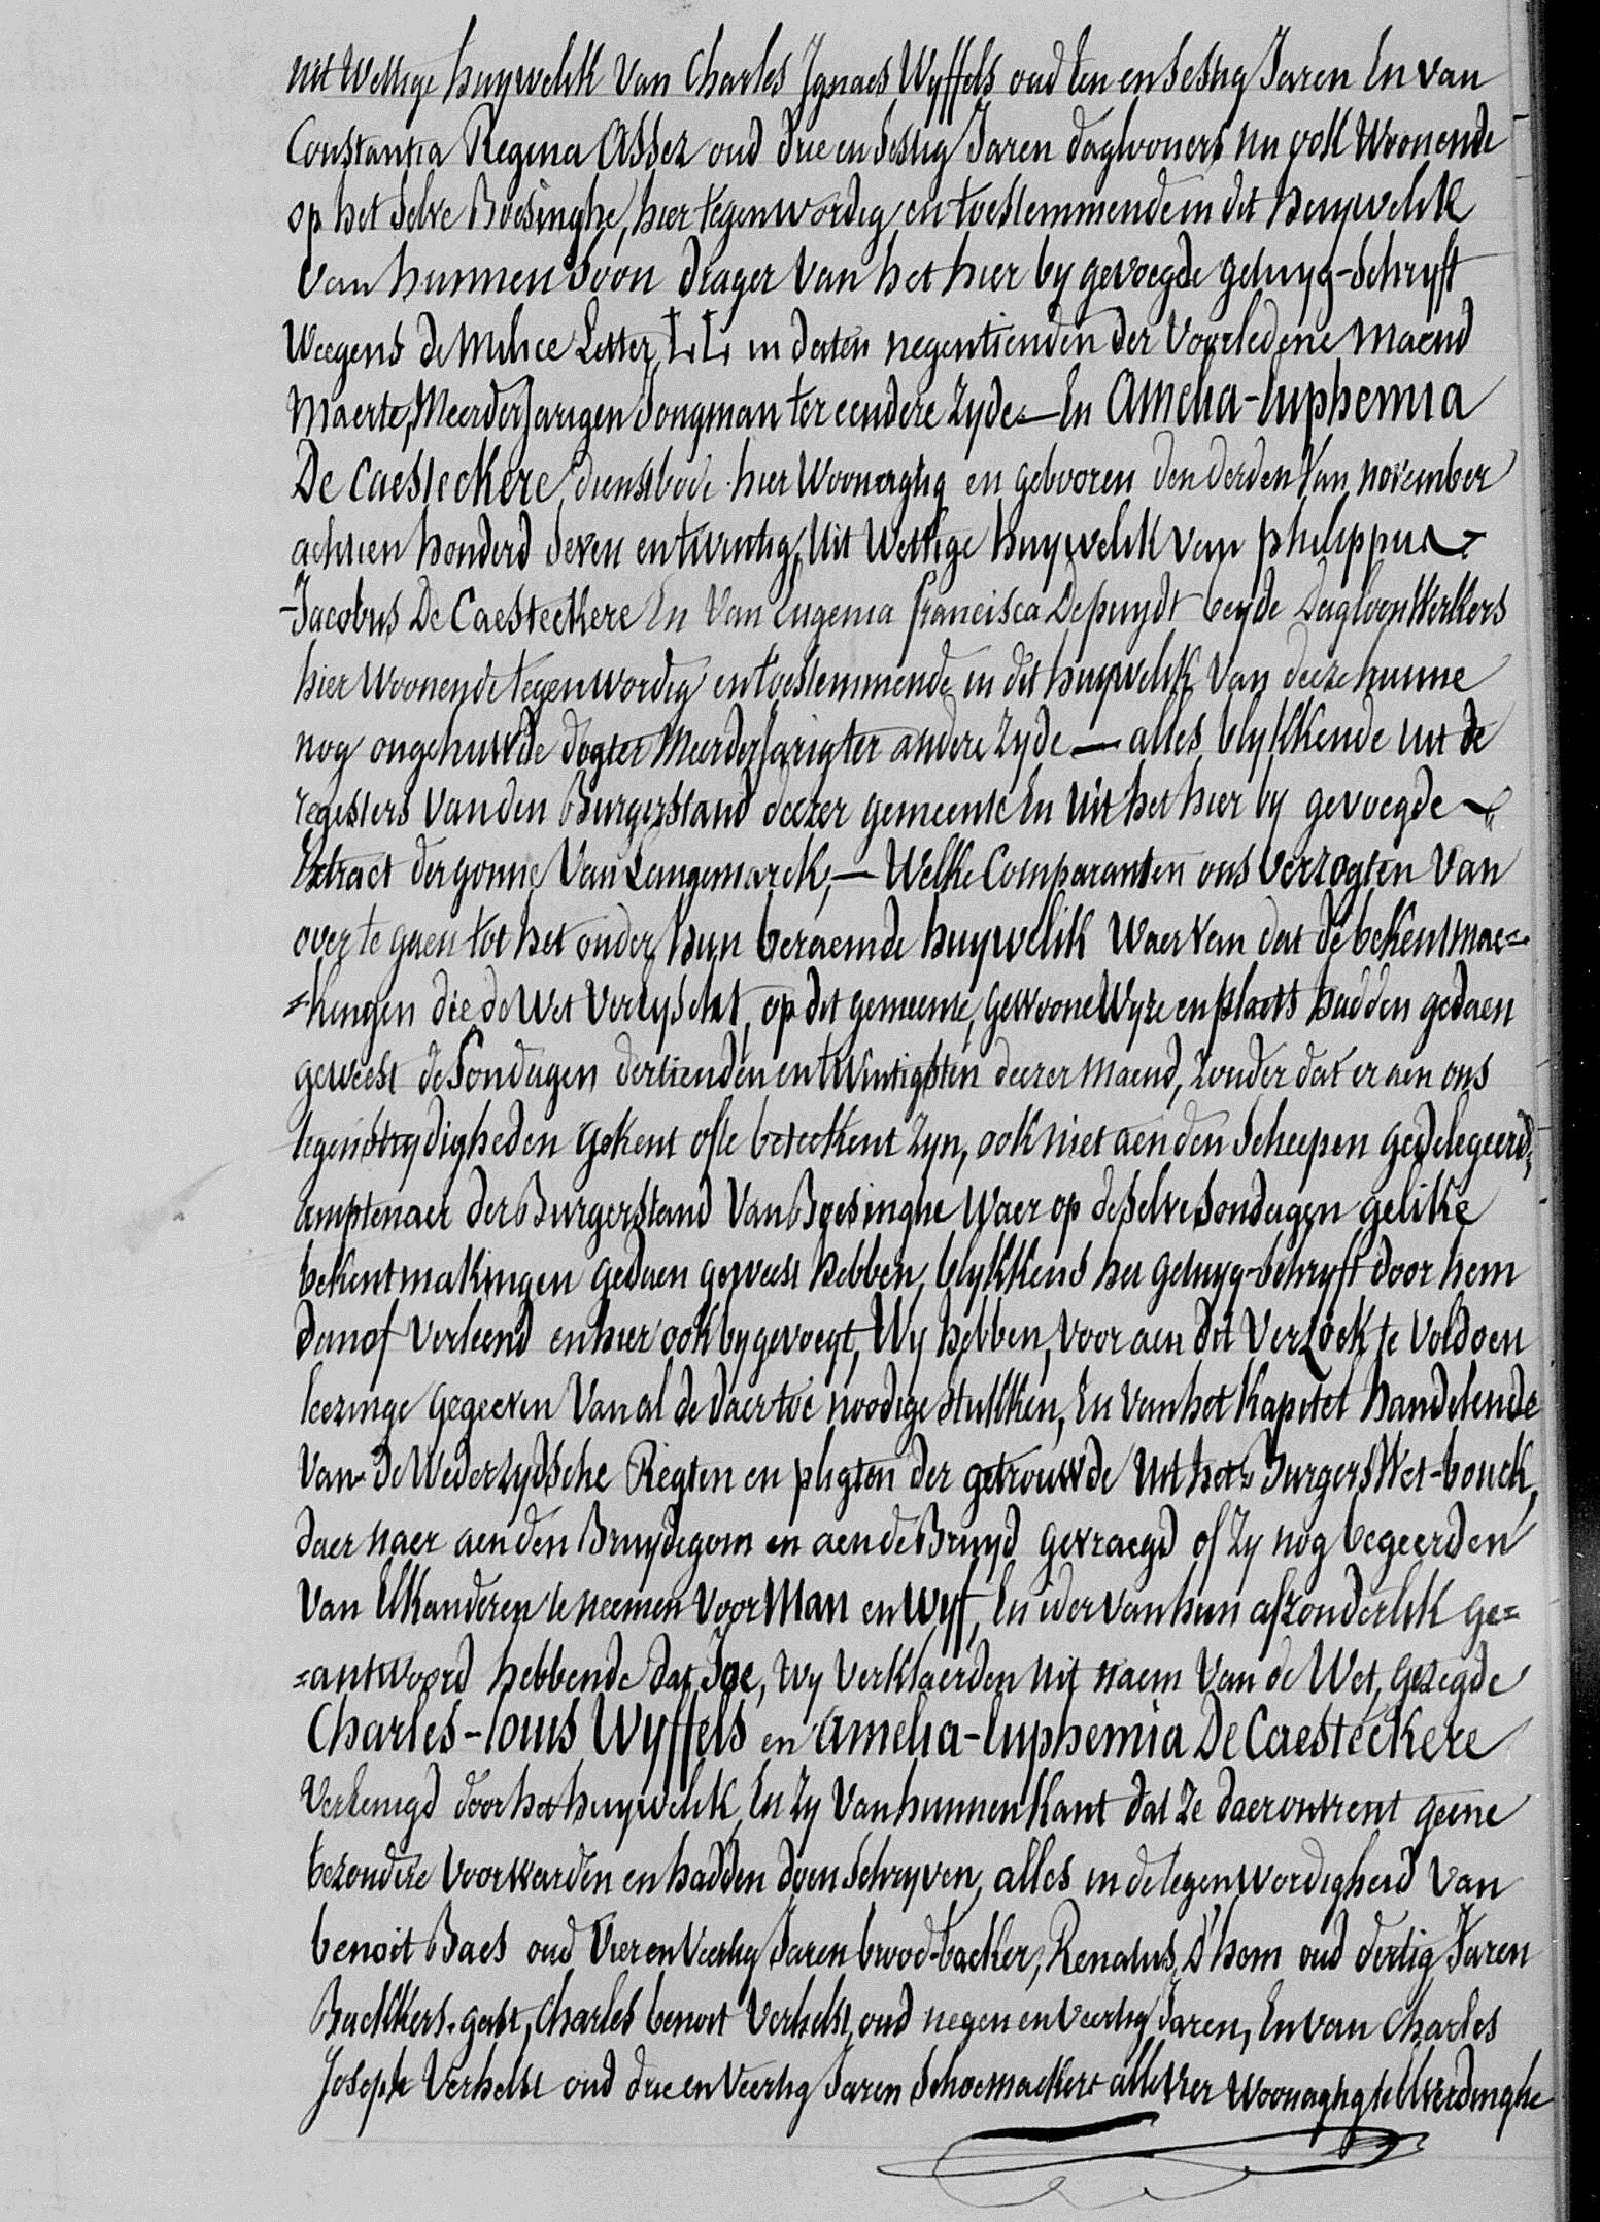 uit Wettige huywelik Van Charles Jgnaes Wyffels oud een en sestig Jaren En van
Constantia Regina Assez oud drie en sestig Jaren daglooners nu ook Woonende
op het selve Boesinghe, hier tegenwordig en toestemmende in dit huywelik
van hunnen soon drager van het hier by gevoegde getuyg-schryft
Weegens de Milice Letter LL in daten negentienden der voorledene maend
Maerte, Meerderjarigen Jongman ter eendere zyde.— En Amelia-Euphemia
De Caesteckere dienstbode hier Woonagtig en gebooren den derden Van november
achtien honderd seven en twintig, Uit Wettige huywelik van philippus
Jacobus De Caesteckere En Van Eugenia francisca Depuydt beyde Dagloonwerkers
hier Woonende tegenwordig en toestemmende in dit huywelik Van deeze hunne
nog ongehuwde dogter Meerderjarig ter andere zyde — alles blykkende uit de
registers Van den Burgerstand deezer gemeente En Uit het hier by gevoegde
Extract dergonne Van Langemarck, — Welke Comparanten ons verzogten Van
over te gaen tot het onder hun beraemde huywelik Waer van dat de bekentmae=
=kingen die de Wet Vereyscht, op dit gemeente, gewoone Wyze en plaets hadden gedaen
geweest de Sondagen dertienden en twintigsten deezer maend, zonder dat er aen ons
tegenstrydigheden gekent ofte beteekent zyn, ook niet aen den Scheepen gedelegeerd,
amptenaer der Burgerstand Van Boesinghe Waer op deselve Sondagen gelike
bekentmakingen gedaen geweest hebben, blykkens het getuyg-schryft door hem
danof verleend en hier ook by gevoegt, Wy hebben, voor aen dit Verzoek te voldoen
leezinge gegeeven Van al de daer toe noodige stukken, En van het Kapitel handelende
Van de Wederzydsche Regten en pligten der getrouwde Uit het Burgers Wet-bouck,
daer naer aen den Bruydegom en aen de Bruyd gevraegd of Zy nog begeerden
Van Elkanderen te neemen Voor Man en Wyf, En ider van hun afzonderlik ge=
=antwoord hebbende dat Jae, Wy verklaerden uit naem Van de Wet, gezegde
Charles-Louis Wyffels en Amelia-Euphemia De Caesteckere
Vereenigd door het huywelik, En Zy Van hunnen Kant dat ze daerontrent geene
bezondere voorwarden en hadden doen schryven, alles in de tegenwordigheid van
benoit Baes oud Vier en Veertig Jaren brood-backer, Renatus D'hom oud dertig Jaren
Backkers-gast, Charles benoit Verhelst, oud negen en veertig Jaren, En van Charles
Joseph Verhelst oud drie en Veertig Jaren Schoemackers alle Vier Woonagtig te Elverdinghe